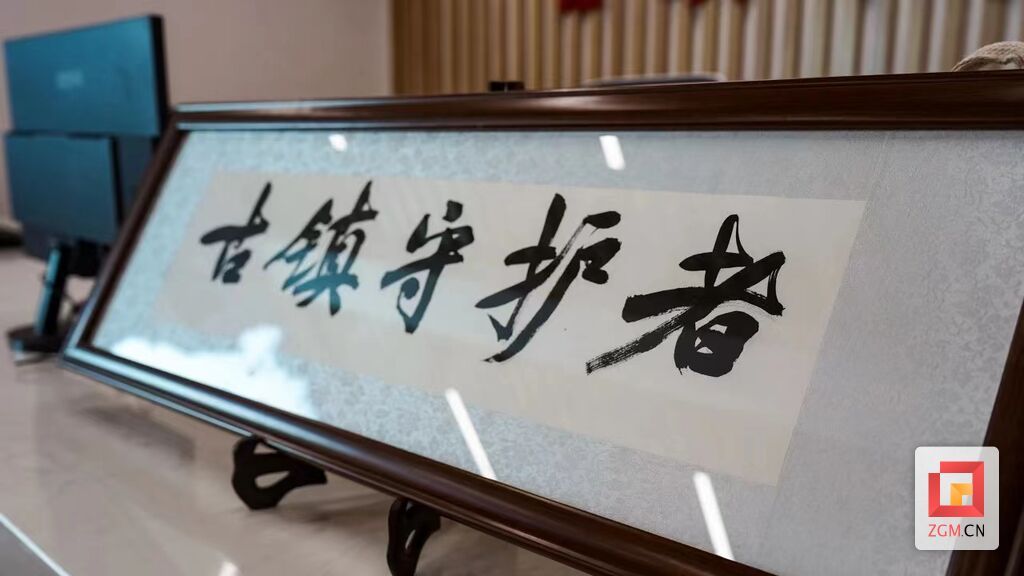 古镇守护者
ZGM.CN